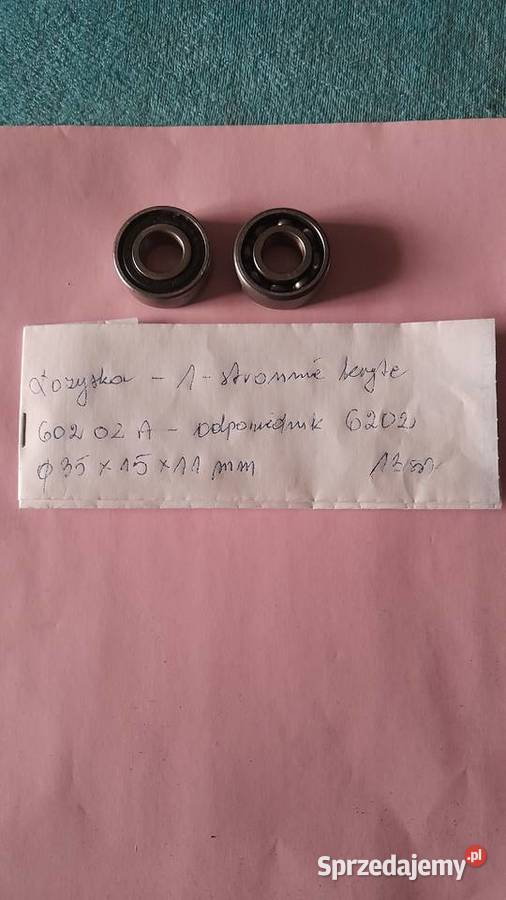 Łożyska - 1-stronnie kryte
602 02 A - odpowiednik 6202
φ 35 x 15 x 11 mm
Sprzedajemy.pl